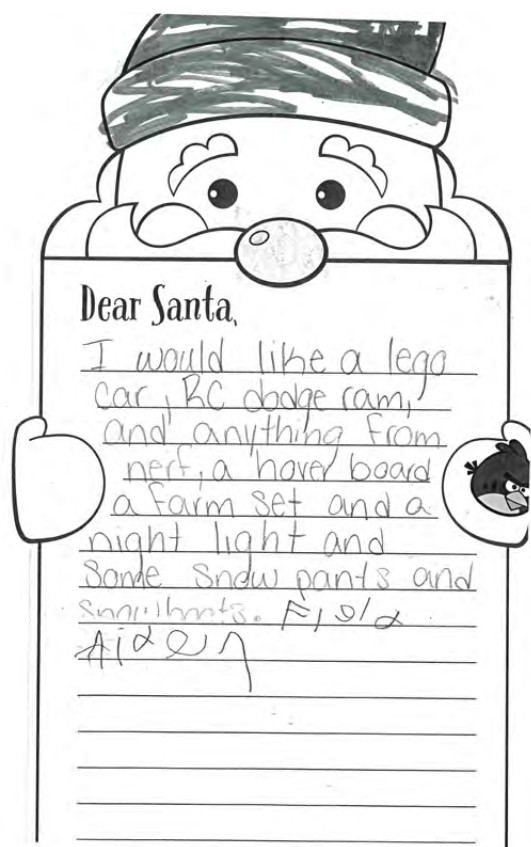 Dear Santa,
I would like a lego
car, RC dodge ram,
and anything from
nerf, a hover board
a farm set and a
night light and
Some Snow pants and
Snow boots.
Aiden